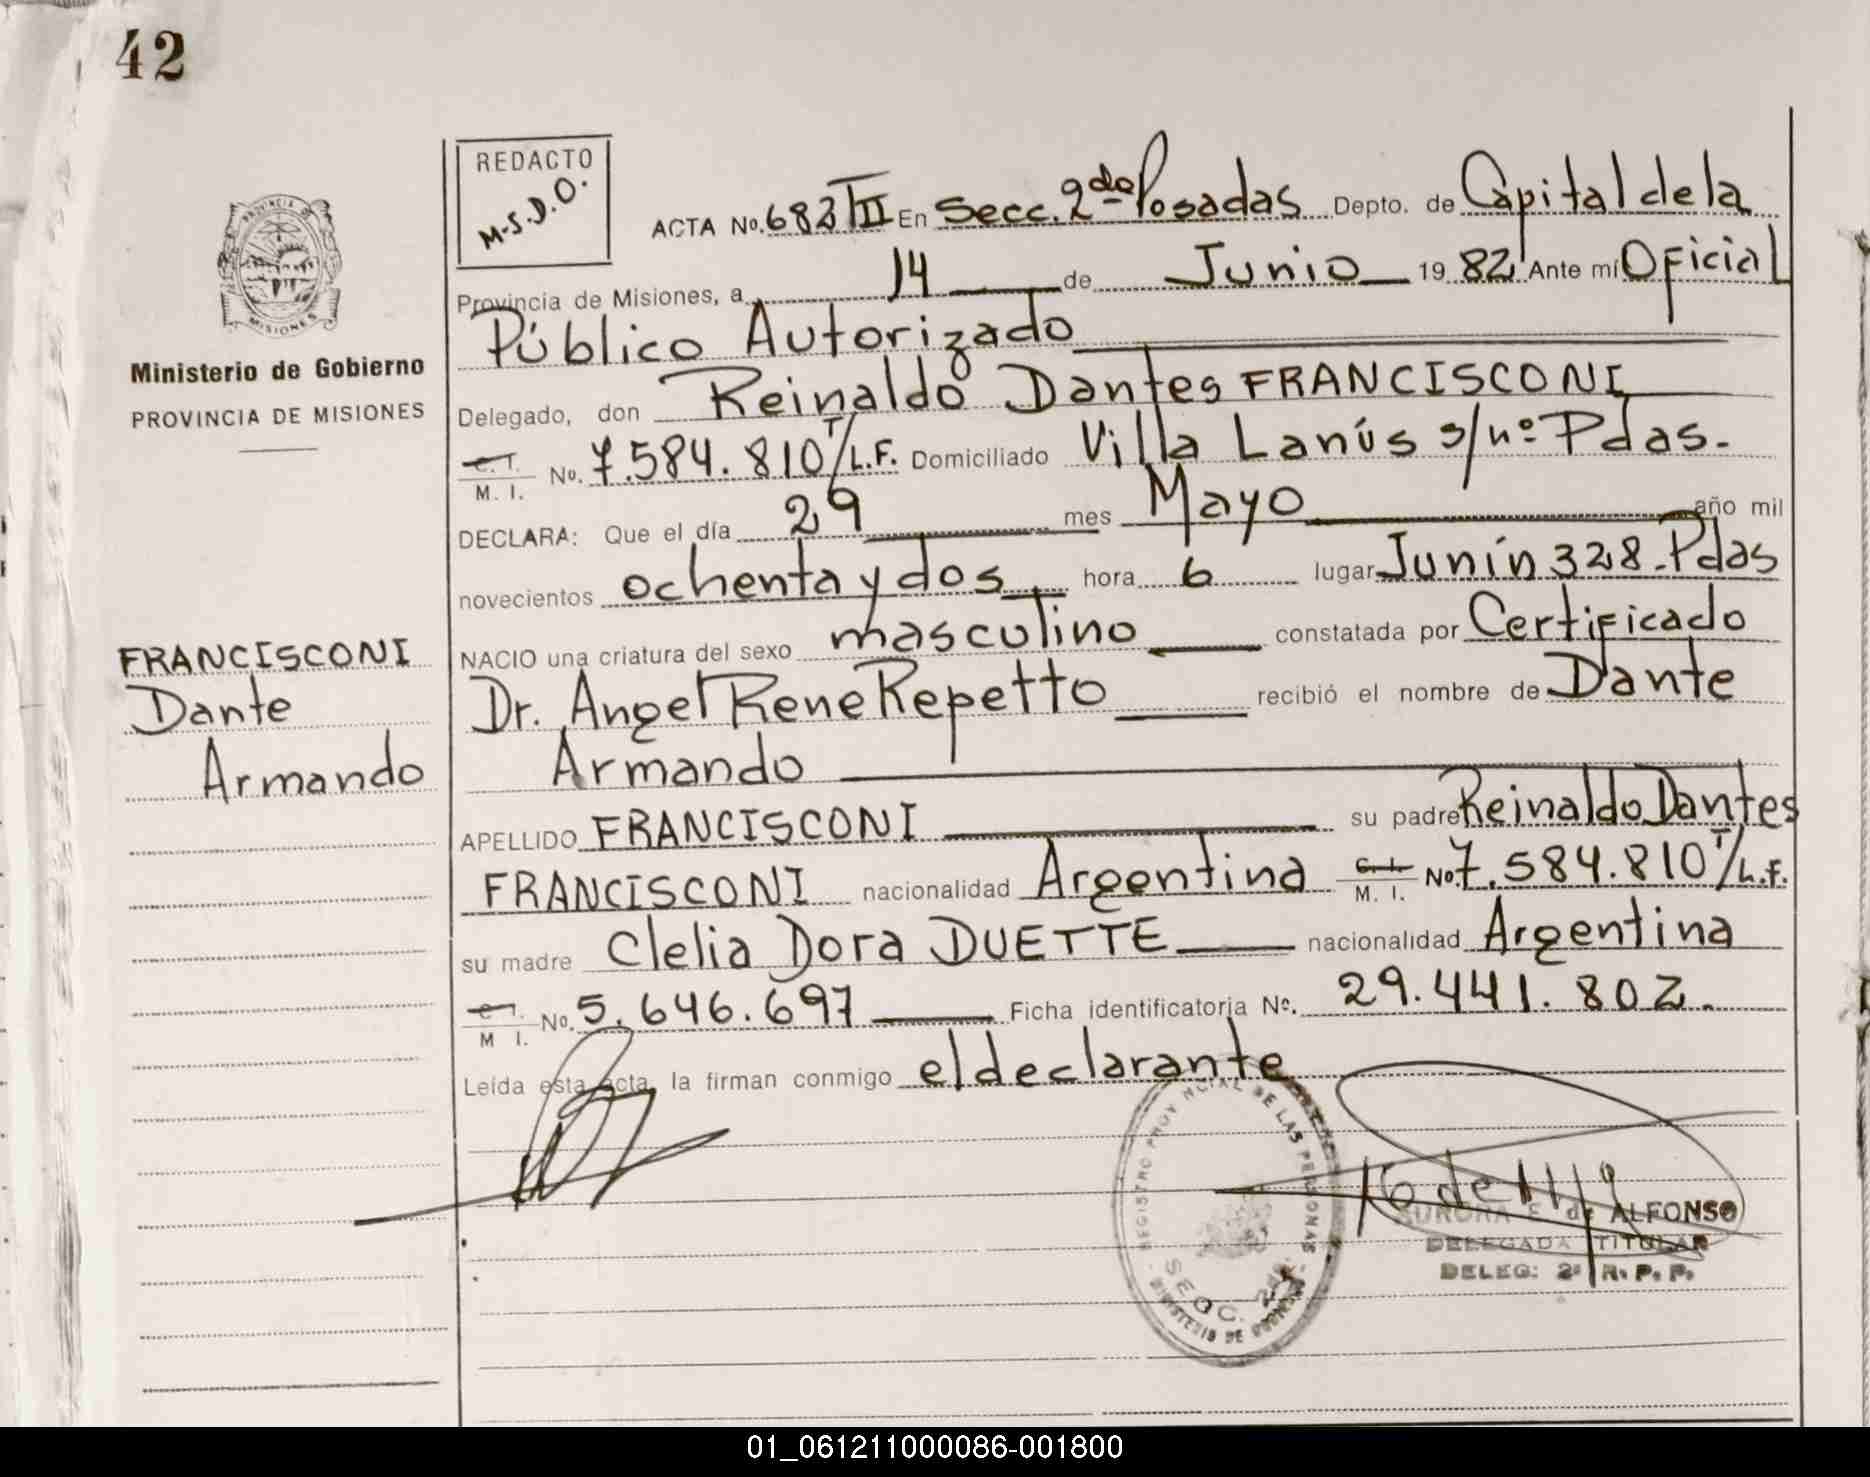 42
REDACTO
M.S.D.O.
ACTA No. 683 TII En Secc. 2da Posadas Depto. de Capital de la
Provincia de Misiones, a 14 de Junio 19 82 Ante mí Oficial
Público Autorizado
PROVINCIA DE
MISIONES
Ministerio de Gobierno
PROVINCIA DE MISIONES
Delegado, don Reinaldo Dantes FRANCISCONI
C.I.
M. I. No. 7.584.810 T/L.F. Domiciliado Villa Lanús s/nº Pdas.
DECLARA: Que el día 29 mes Mayo año mil
novecientos ochenta y dos hora 6 lugar Junín 328-Pdas
NACIO una criatura del sexo masculino constatada por Certificado
Dr. Angel Rene Repetto recibió el nombre de Dante
Armando
FRANCISCONI
Dante
Armando
APELLIDO FRANCISCONI su padre Reinaldo Dantes
FRANCISCONI nacionalidad Argentina C.I.
M. I. No. 7.584.810 T/L.F.
su madre Clelia Dora DUETTE nacionalidad Argentina
C.I.
M I. No. 5.646.697 Ficha identificatoria No. 29.441.802.
Leída esta acta, la firman conmigo el declarante
REGISTRO PROVINCIAL DE LAS PERSONAS
MINISTERIO DE GOBIERNO
SECC. 2da
AURORA E de ALFONSO
DELEGADA TITULAR
DELEG: 2ª R. P. P.
01_061211000086-001800